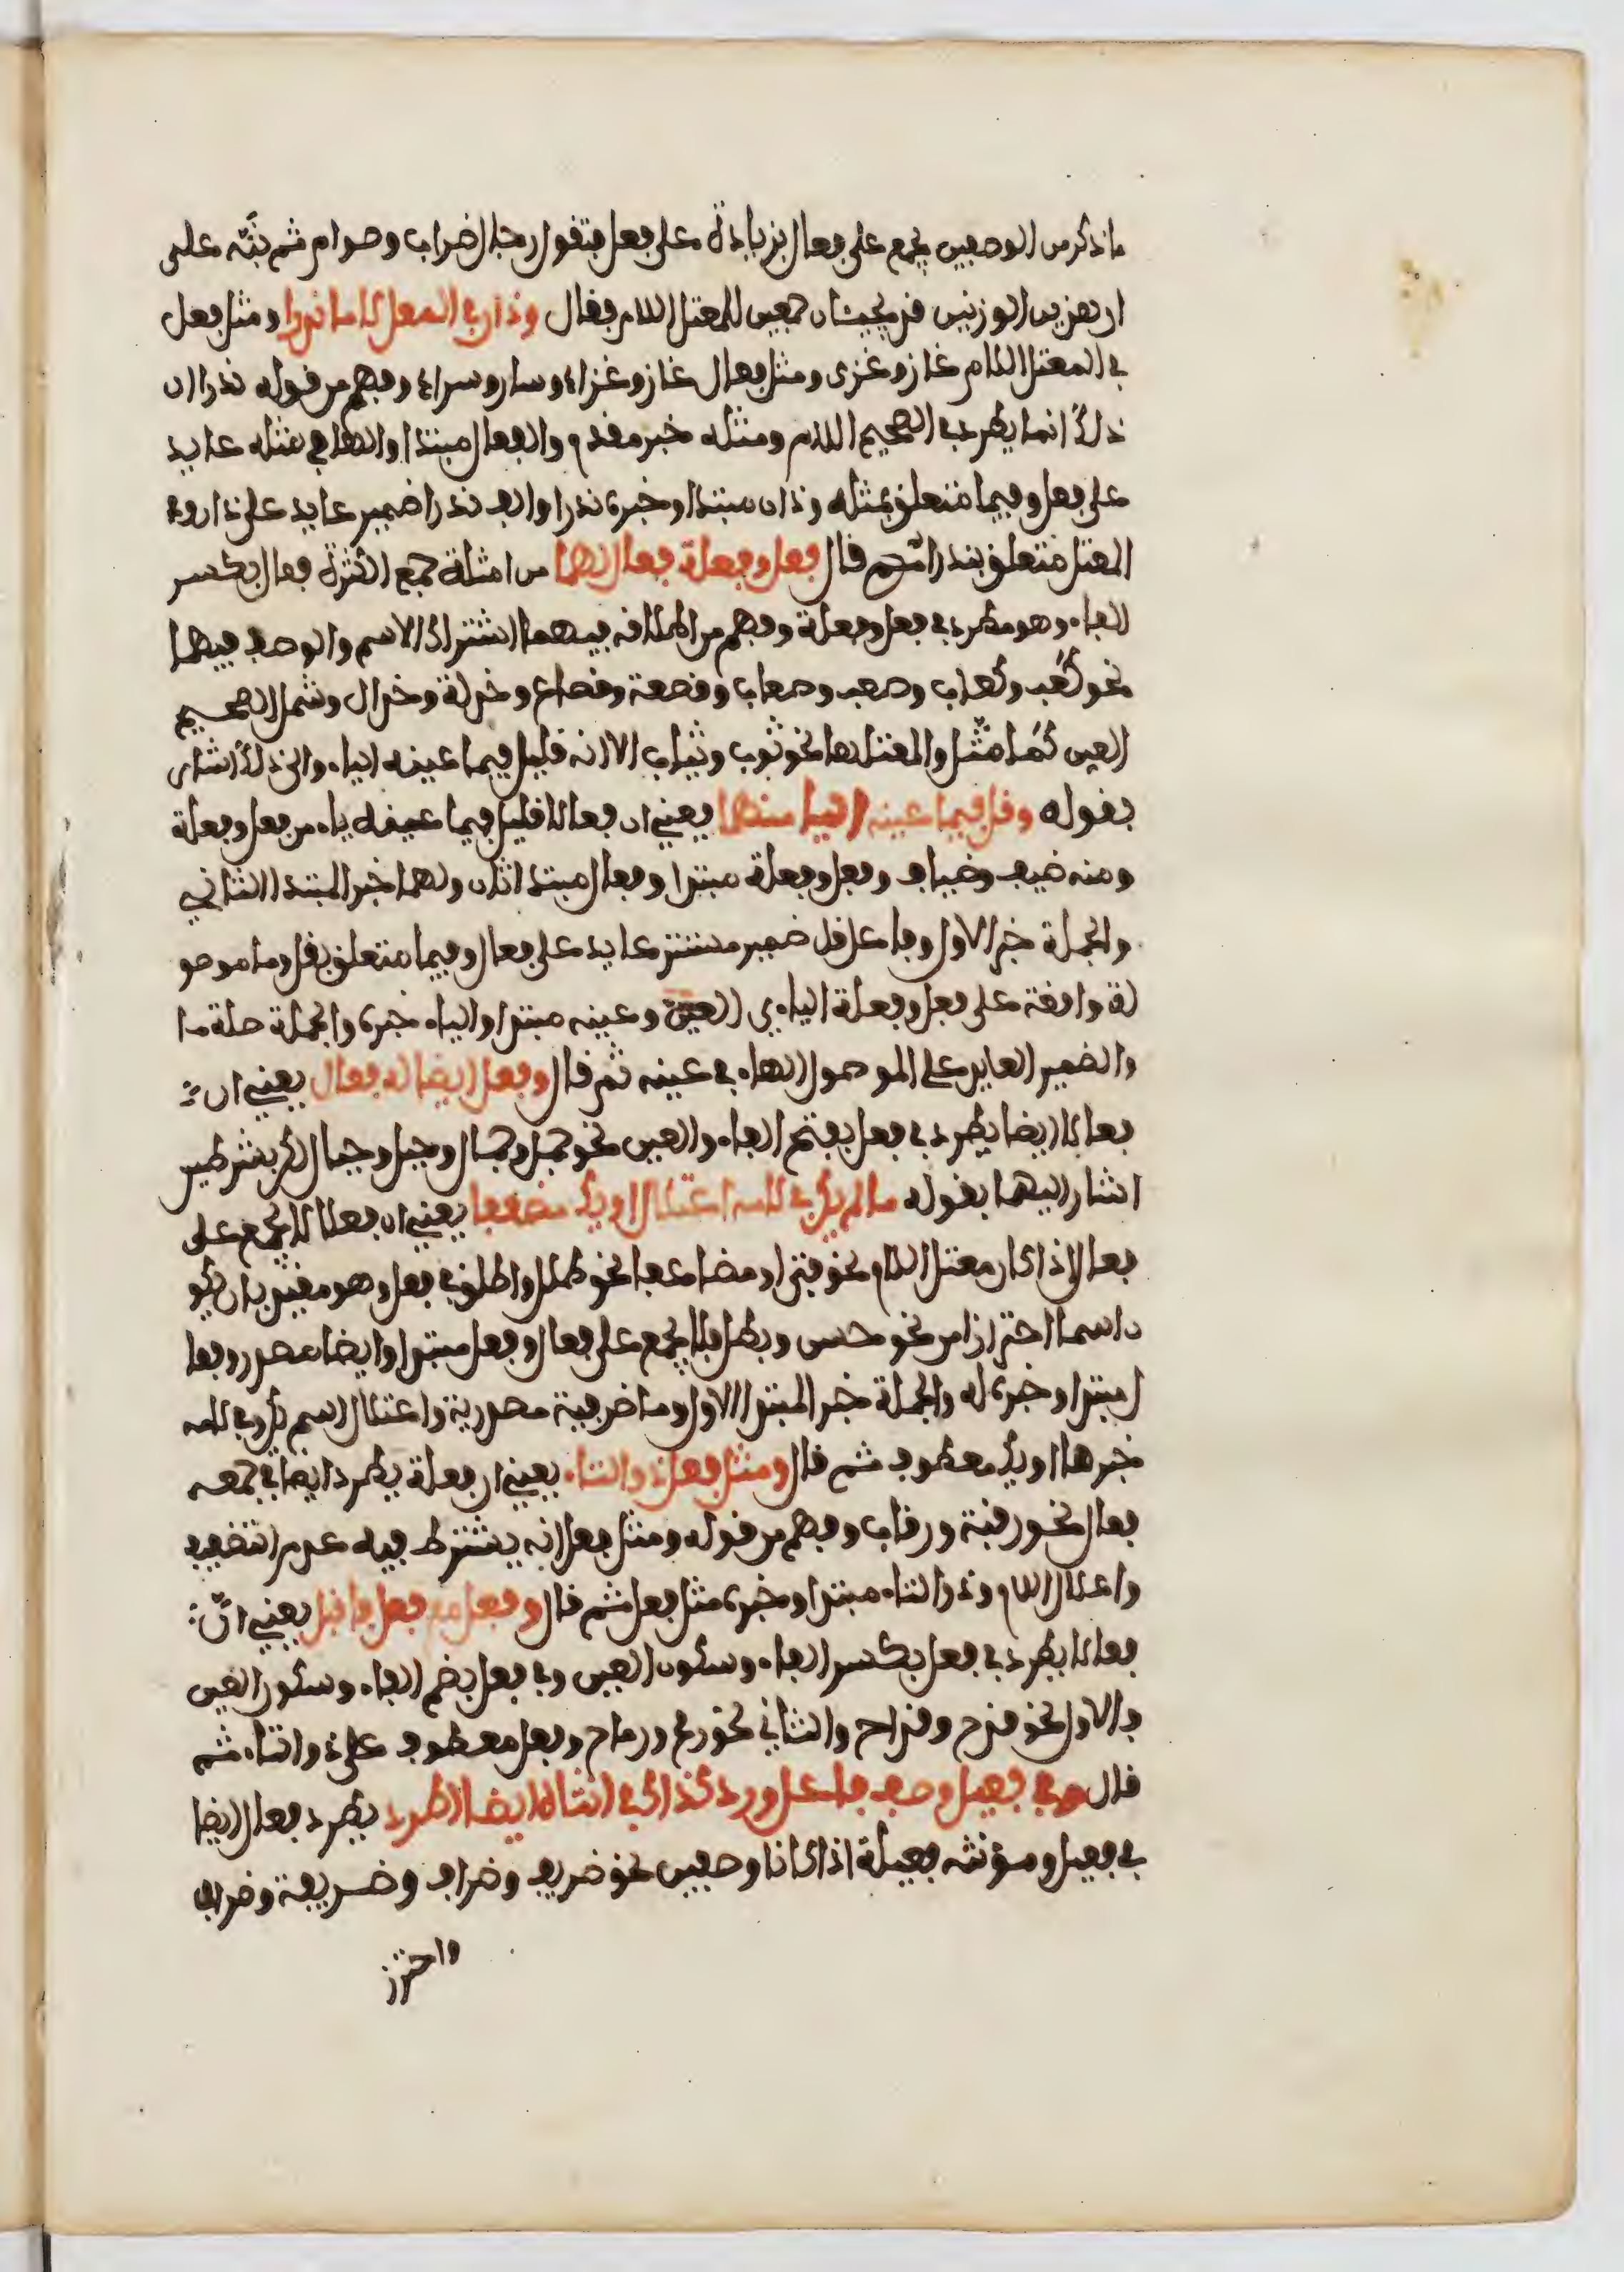 ما ذكر من الوصفين يجمع على فعال بزيادة على فعل فتقول رجال ضراب وصوام ثم نبّه على
ان هذين الوزنين قد يجيئان جمعين للمعتل اللام فقال وذان في المعل لاما ندرا ومثل فعل
في المعتل اللام غاز وغزى ومثل فعال غاز وغزاء وسار وسراء وفهم من قوله ندرا ان
ذلك انما يطرد في الصحيح اللام ومثله خبر مقدم والفعال مبتدا والهاء في مثله عايد
على فعل وفيما متعلق بمثله وذان مبتدا وخبره ندرا والف ندرا ضمير عايد على ذان وفي
المعتل متعلق بندرا ثم قال فعل وفعلة فعال لهما من امثلة جمع الكثرة فعال بكسر
الفاء وهو مطرد في فعل وفعلة وفهم من اطلاقه فيهما اشتراك الاسم والوصف فيهما
نحو كَعب وكعاب وصعب وصعاب وقصعة وقصاع وخدلة وخدال وشمل الصحيح
العين كما مثّل والمعتلها نحو ثوب وثياب الا انه قليل فيما عينه الياء والى ذلك اشار
بقوله وقل فيما عينه اليا منهما يعني ان فعالا قليل فيما عينه ياء من فعل وفعلة
ومنه ضيف وضياف وفعل وفعلة مبتدا وفعال مبتدا ثان ولهما خبر المبتدا الثاني
والجملة خبر الاول وفاعل قل ضمير مستتر عايد على فعال وفيما متعلق بقل وما موصو
لة واقعة على فعل وفعلة اليائي العين وعينه مبتدا والياء خبره والجملة صلة ما
والضمير العايد على الموصول الهاء في عينه ثم قال وفعل ايضا له فعال يعني ان
فعالا ايضا يطرد في فعل بفتح الفاء والعين نحو جمل وجمال وجبل وجبال لكن بشرطين
اشار اليهما بقوله ما لم يكن في لامه اعتلال او يك مضعفا يعني ان فعلا لا يجمع على
فعال اذا كان معتل اللام نحو فتى او مضاعفا نحو طلل واطلق في فعل وهو مقيد بان يكو
ن اسما احترازا من نحو حسن وبطل فلا يجمع على فعال وفعل مبتدا وايضا مصدر وفعا
ل مبتدا وخبره له والجملة خبر المبتدا الاول وما ظرفية مصدرية واعتلال اسم يكن وفي لامه
خبرها او يك معطوف ثم قال ومثل فعل ذو التاء يعني ان فعلة يطرد ايضا في جمعه
فعال نحو رقبة ورقاب وفهم من قوله ومثل فعل انه يشترط فيه عدم التضعيف
واعلال اللام وذو التاء مبتدا وخبره مثل فعل ثم قال وفعل مع فعل فاقبل يعني انّ
فعالا يطرد في فعل بكسر الفاء وسكون العين وفي فعل بضم الفاء وسكون العين
فالاول نحو قدح وقداح والثاني نحو رمح ورماح وفعل معطوف على ذو التاء ثم
قال وفي فعيل وصف فاعل ورد كذاك في انثاه ايضا اطرد يطرد فعال ايضا
في فعيل ومؤنثه فعيلة اذا كانا وصفين نحو ظريف وظراف وظريفة وظراف
واحترز